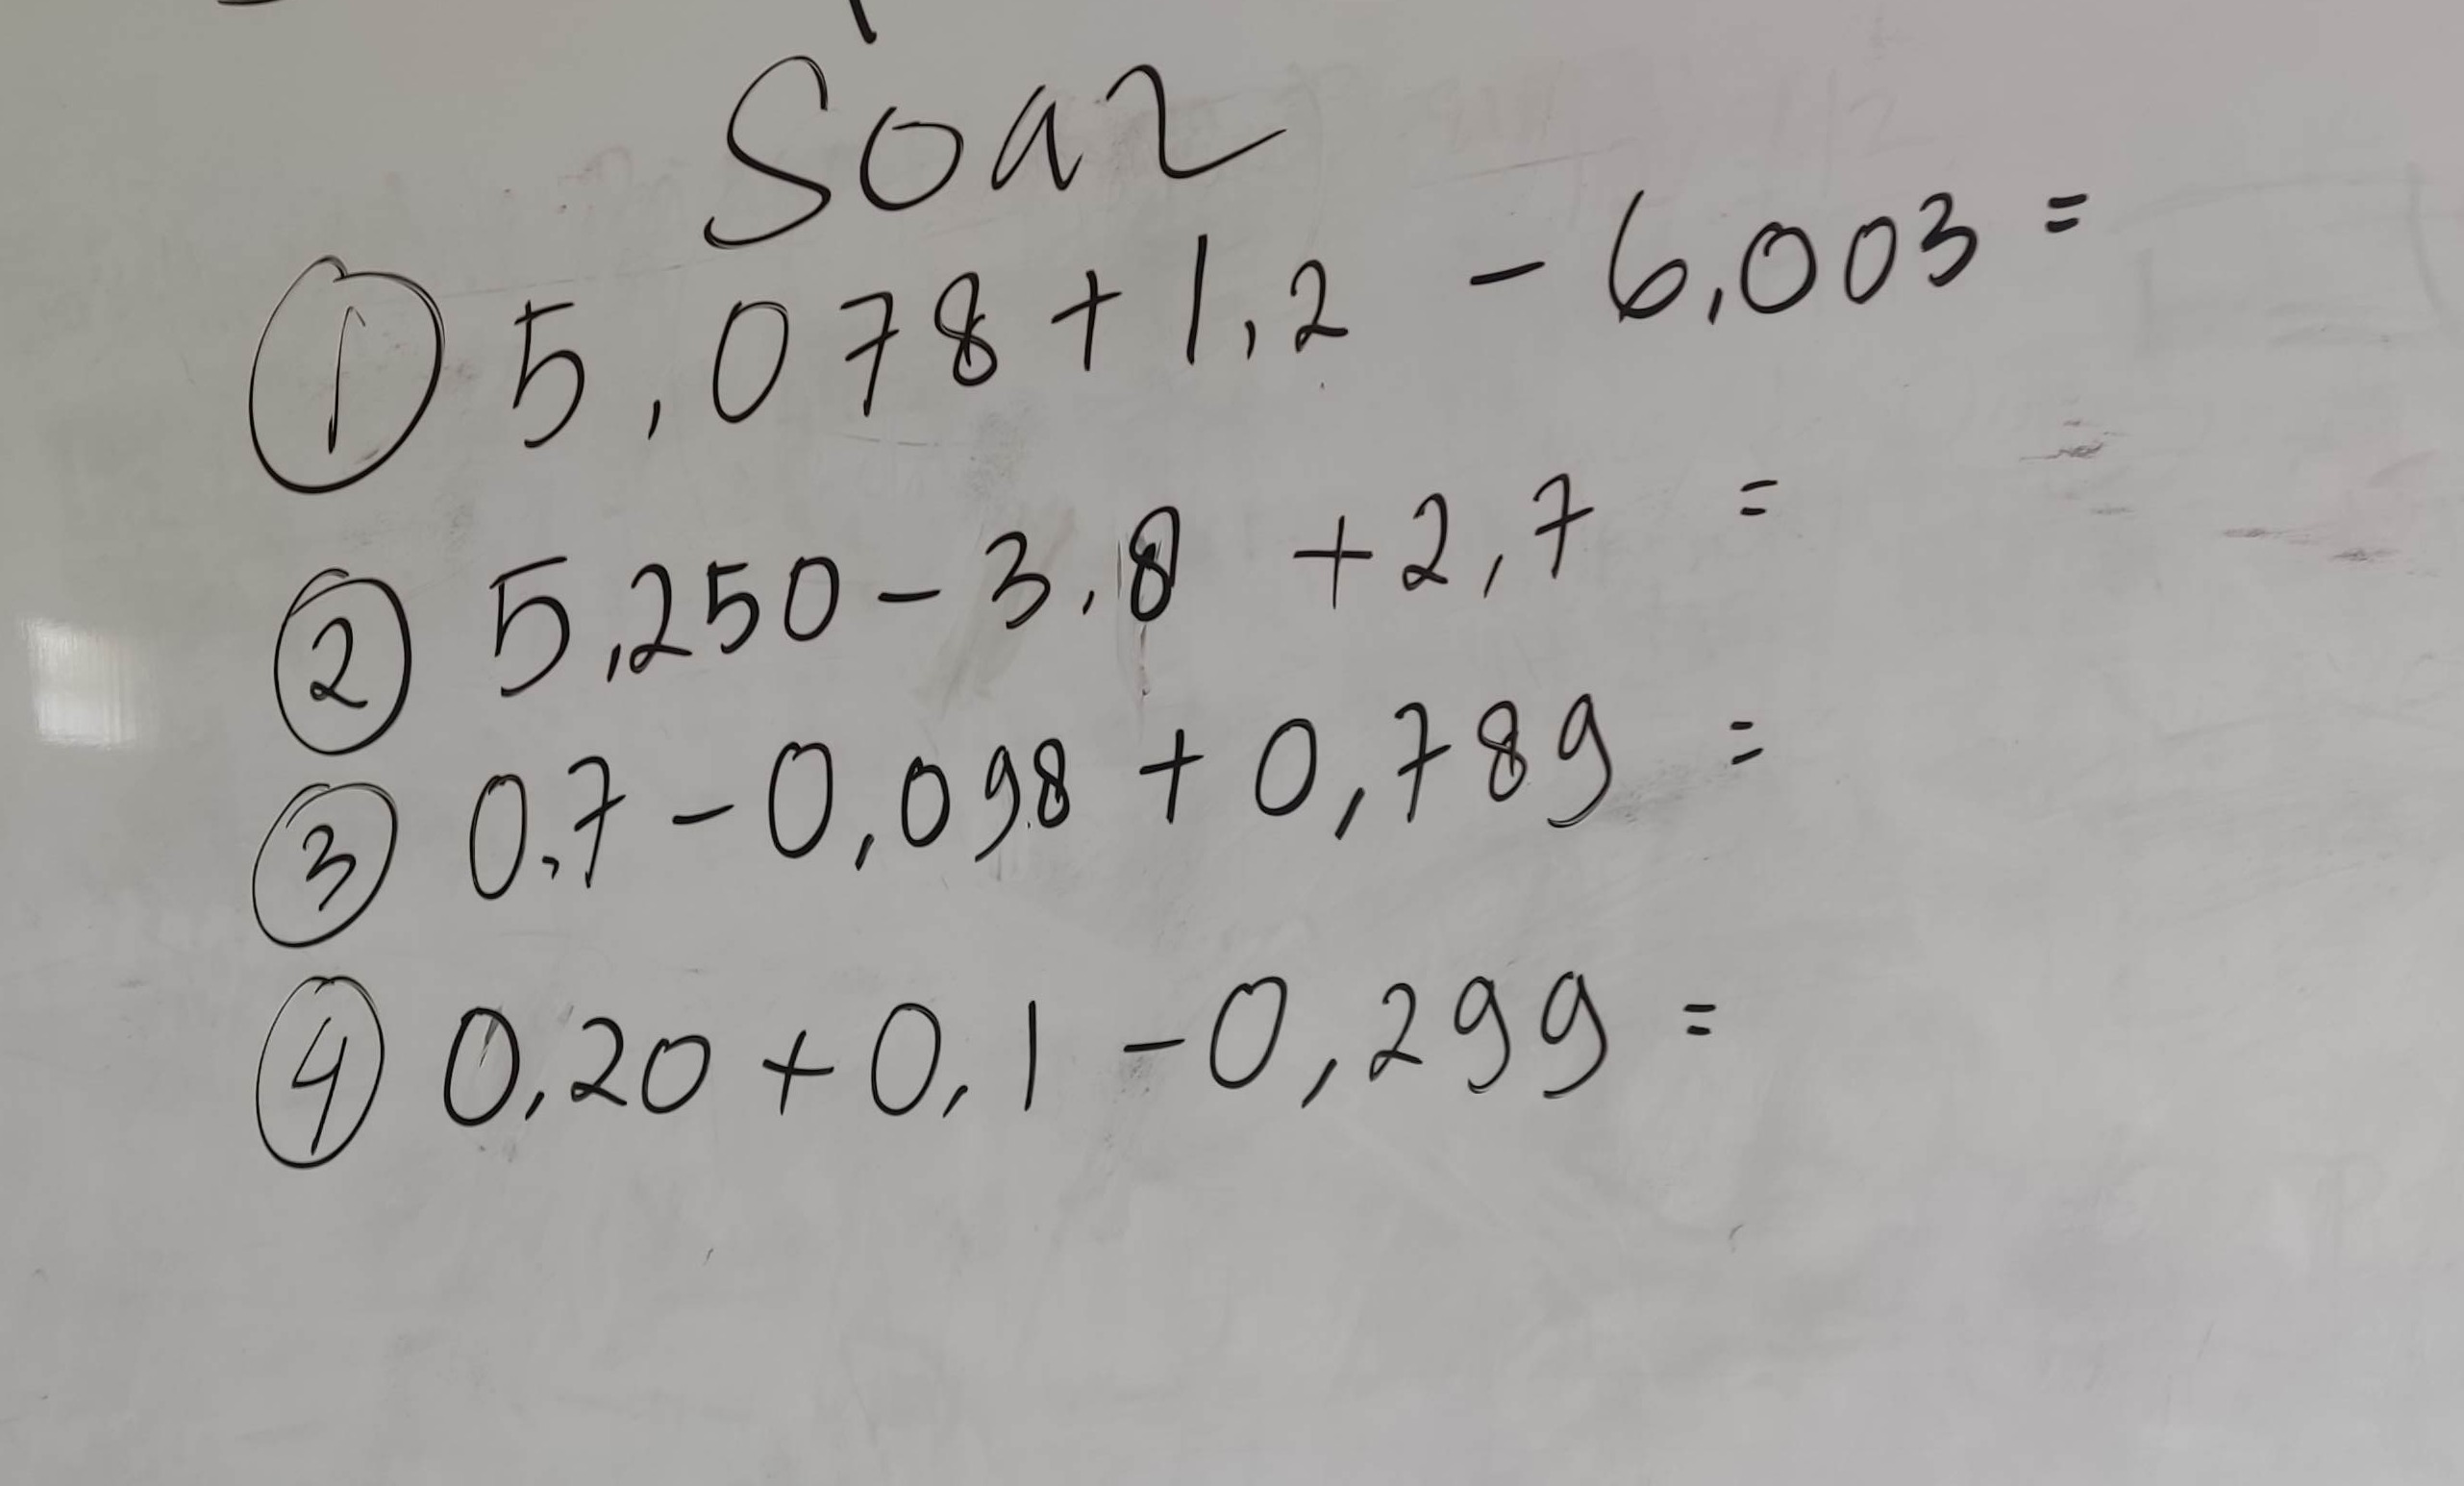 Soal
① 5,078 + 1,2 - 6,003 =
② 5,250 - 3,8 + 2,7 =
③ 0,7 - 0,098 + 0,789 =
④ 0,20 + 0,1 - 0,299 =